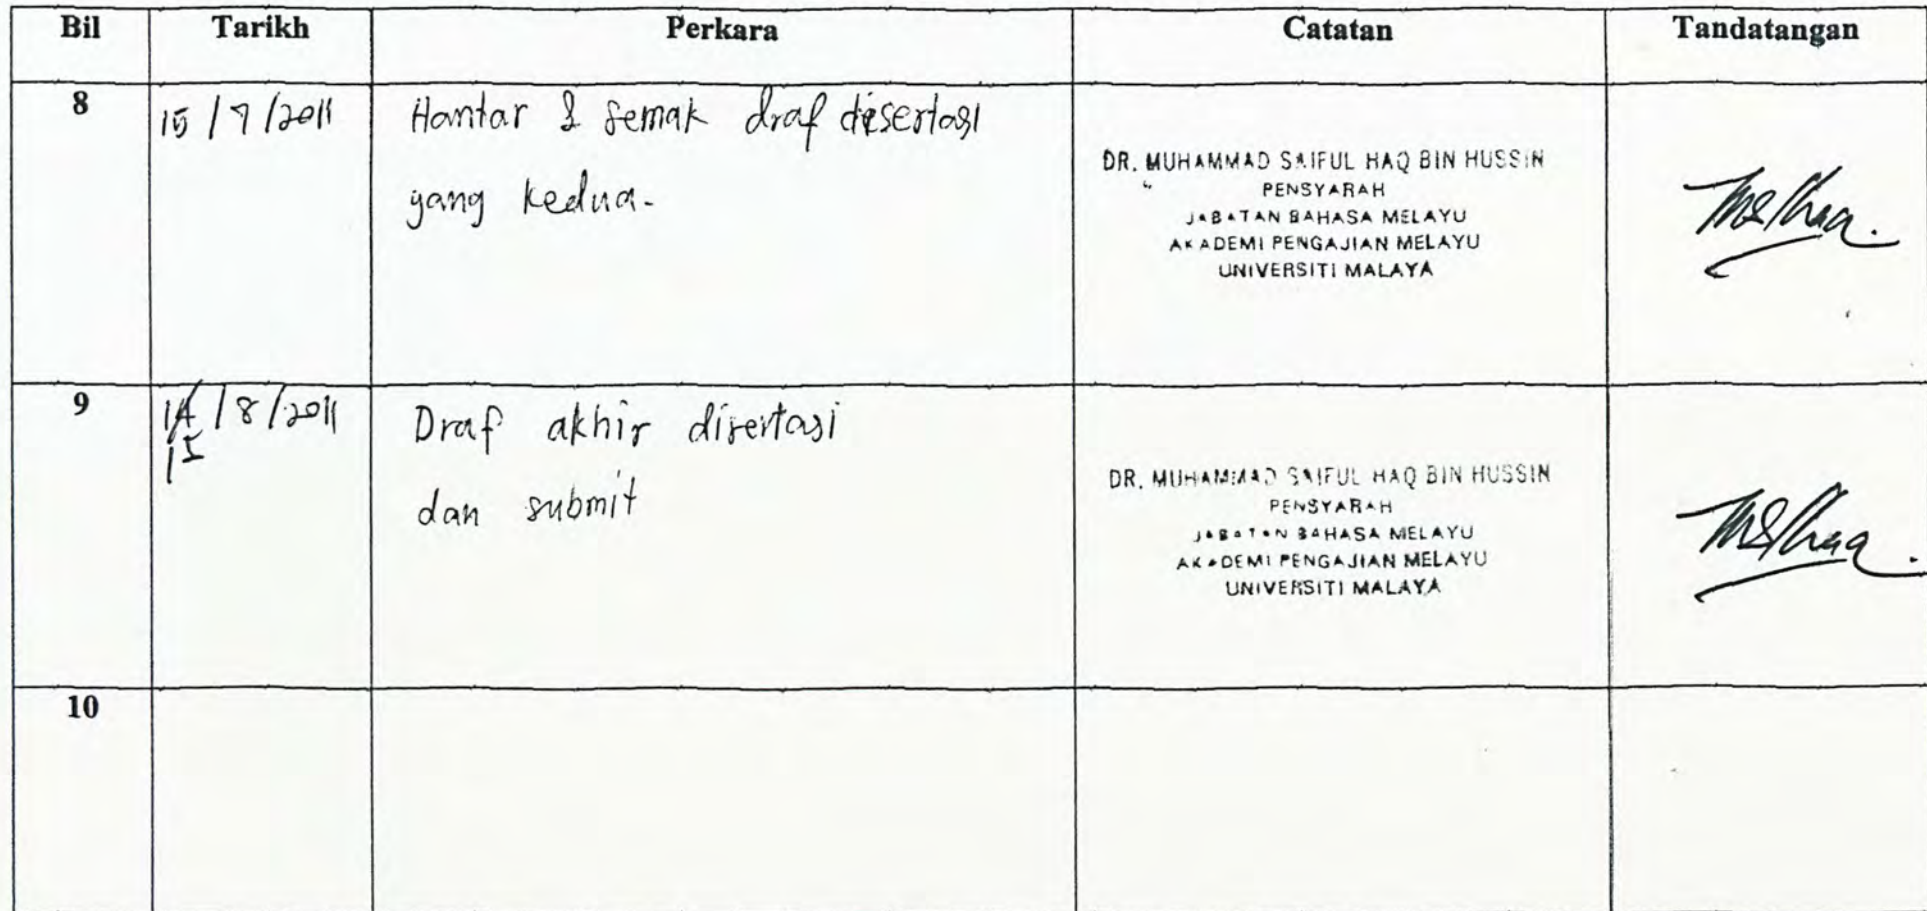 Bil Tarikh Perkara Catatan Tandatangan
8 15/7/2011 Hantar & semak draf disertasi
yang kedua.
DR. MUHAMMAD SAIFUL HAQ BIN HUSSIN
PENSYARAH
JABATAN BAHASA MELAYU
AKADEMI PENGAJIAN MELAYU
UNIVERSITI MALAYA
9 14/8/2011 Draf akhir disertasi
15
dan submit
DR. MUHAMMAD SAIFUL HAQ BIN HUSSIN
PENSYARAH
JABATAN BAHASA MELAYU
AKADEMI PENGAJIAN MELAYU
UNIVERSITI MALAYA
10